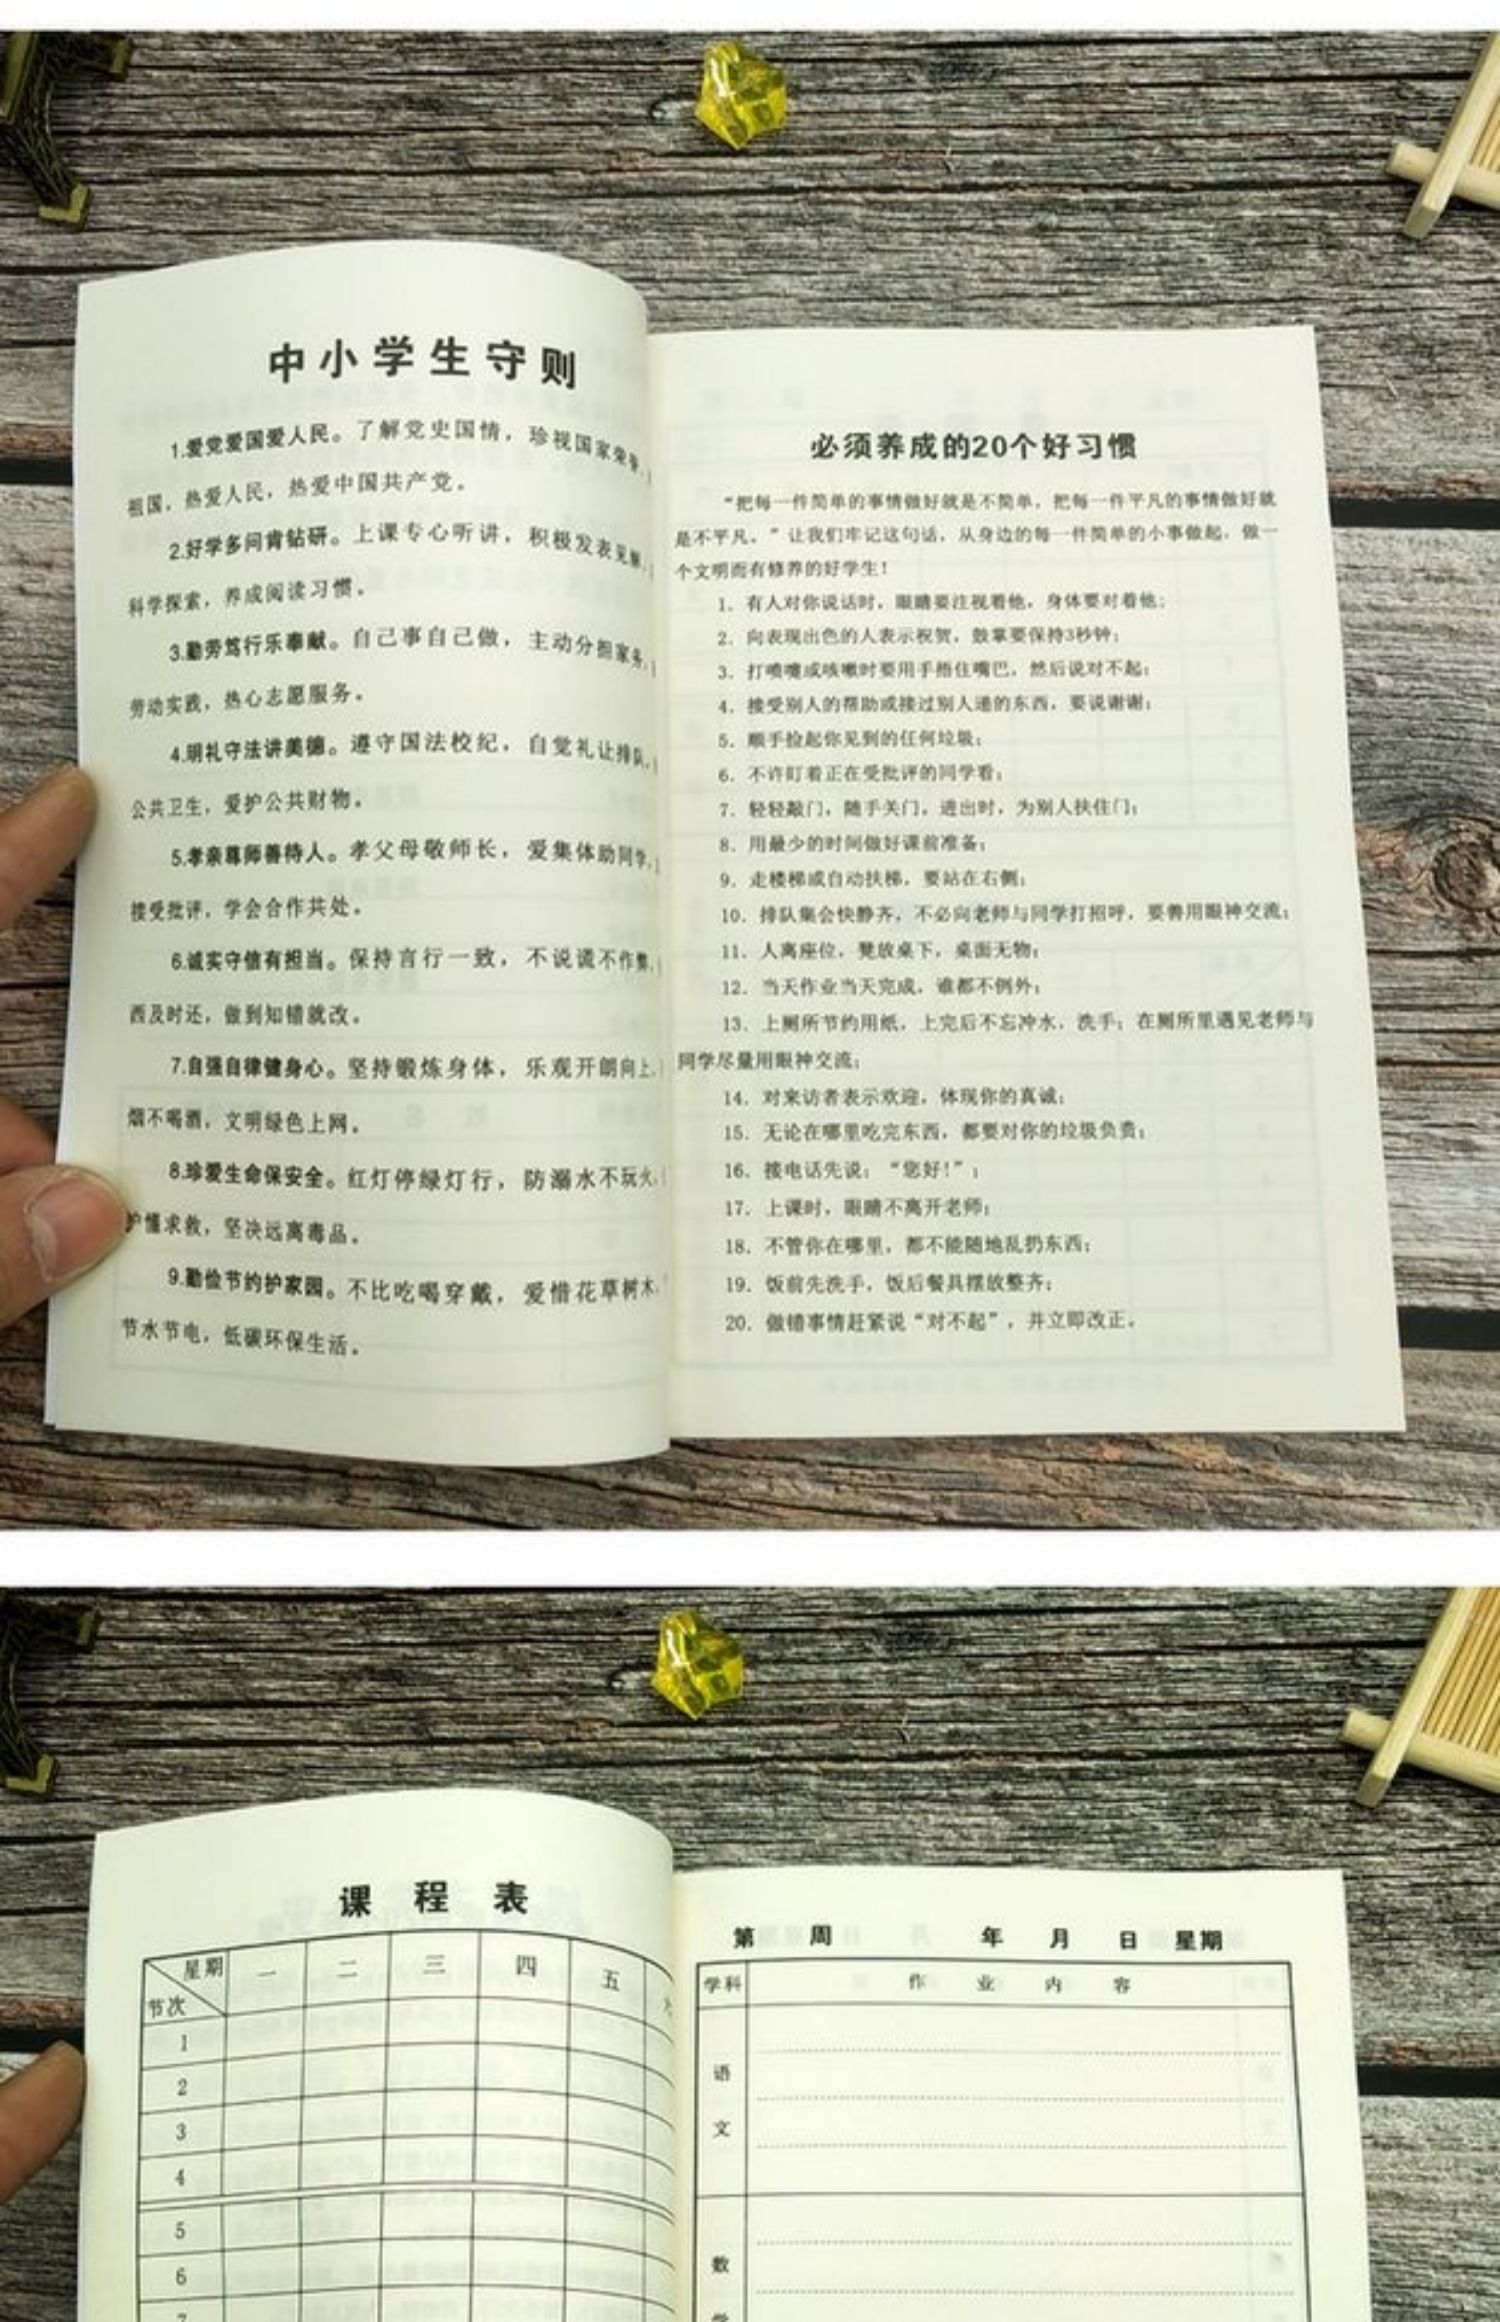 中小学生守则
1.爱党爱国爱人民。了解党史国情，珍视国家荣誉，
祖国，热爱人民，热爱中国共产党。
2.好学多问肯钻研。上课专心听讲，积极发表见解，
科学探索，养成阅读习惯。
3.勤劳笃行乐奉献。自己事自己做，主动分担家务，
劳动实践，热心志愿服务。
4.明礼守法讲美德。遵守国法校纪，自觉礼让排队，
公共卫生，爱护公共财物。
5.孝亲尊师善待人。孝父母敬师长，爱集体助同学，
接受批评，学会合作共处。
6.诚实守信有担当。保持言行一致，不说谎不作弊，
西及时还，做到知错就改。
7.自强自律健身心。坚持锻炼身体，乐观开朗向上，
烟不喝酒，文明绿色上网。
8.珍爱生命保安全。红灯停绿灯行，防溺水不玩火，
护懂求救，坚决远离毒品。
9.勤俭节约护家园。不比吃喝穿戴，爱惜花草树木，
节水节电，低碳环保生活。
必须养成的20个好习惯
“把每一件简单的事情做好就是不简单，把每一件平凡的事情做好就
是不平凡。”让我们牢记这句话，从身边的每一件简单的小事做起，做一
个文明而有修养的好学生！
1. 有人对你说话时，眼睛要注视着他，身体要对着他；
2. 向表现出色的人表示祝贺，鼓掌要保持3秒钟；
3. 打喷嚏或咳嗽时要用手捂住嘴巴，然后说对不起；
4. 接受别人的帮助或接过别人递的东西，要说谢谢；
5. 顺手捡起你见到的任何垃圾；
6. 不许盯着正在受批评的同学看；
7. 轻轻敲门，随手关门，进出时，为别人扶住门；
8. 用最少的时间做好课前准备；
9. 走楼梯或自动扶梯，要站在右侧；
10. 排队集会快静齐，不必向老师与同学打招呼，要善用眼神交流；
11. 人离座位，凳放桌下，桌面无物；
12. 当天作业当天完成，谁都不例外；
13. 上厕所节约用纸，上完后不忘冲水，洗手；在厕所里遇见老师与
同学尽量用眼神交流；
14. 对来访者表示欢迎，体现你的真诚；
15. 无论在哪里吃完东西，都要对你的垃圾负责；
16. 接电话先说：“您好！”；
17. 上课时，眼睛不离开老师；
18. 不管你在哪里，都不能随地乱扔东西；
19. 饭前先洗手，饭后餐具摆放整齐；
20. 做错事情赶紧说“对不起”，并立即改正。
课 程 表
星期 一 二 三 四 五
节次
1
2
3
4
5
6
第 周 年 月 日 星期
学科 作 业 内 容
语
文
数
学